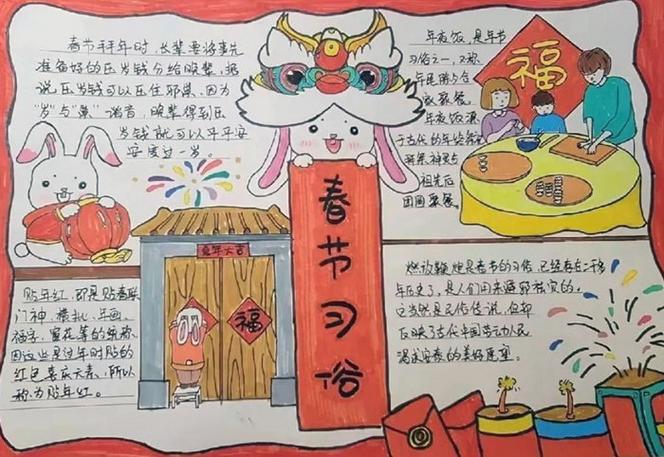 春节拜年时,长辈要将事先
准备好的压岁钱分给晚辈,据
说压岁钱可以压住邪祟,因为
"岁"与"祟"谐音,晚辈得到压
岁钱就可以平平安
安度过一岁。
年夜饭,是年节
习俗之一,又称
年夜饭源
于古代的年终祭祀
祖先后
团圆聚餐。
福
春节习俗
贴年红,即是贴春联
门神、横批、年画、
福字、窗花等的统称,
因这些是过年时贴的
红色喜庆元素,所以
称为贴年红。
兔年大吉
福
燃放鞭炮是春节的习俗,已经有二千多
年历史了,是人们用来避邪驱灾的。
这当然是个传说,但却
反映了古代中国劳动人民
渴求安泰的美好愿望。